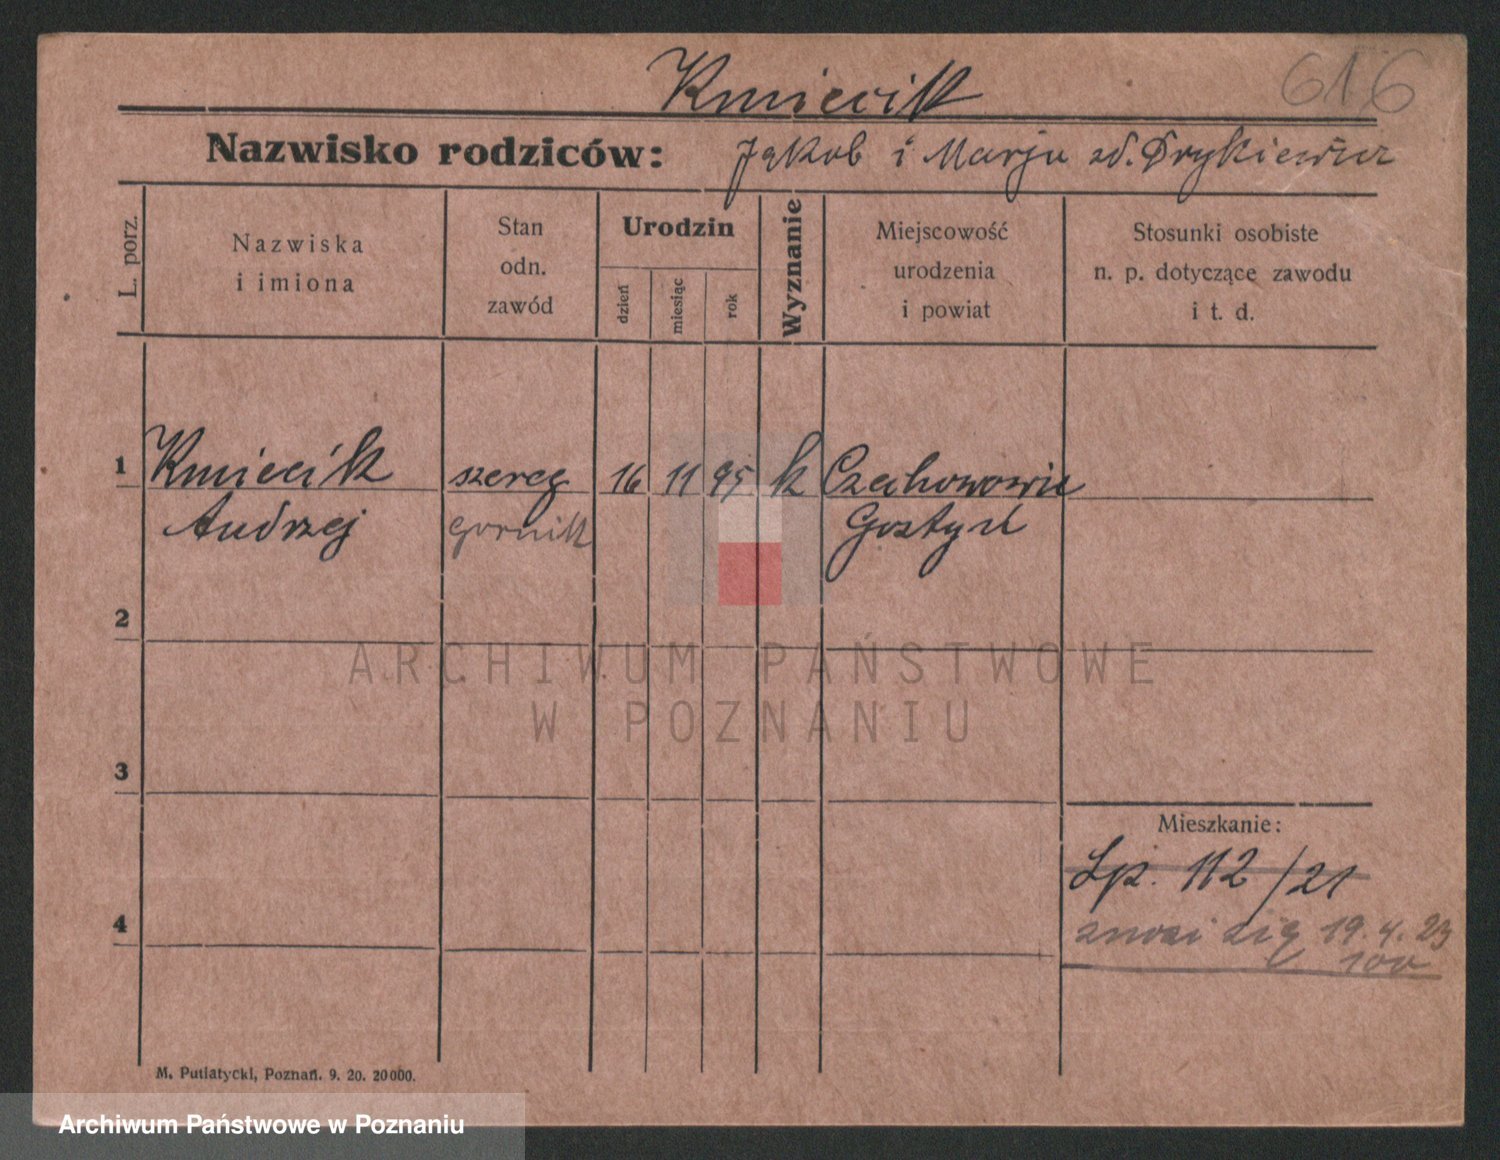 Kmiecik
616
Nazwisko rodziców: Jakob i Marja zd.
L. porz.
Nazwiska i imiona
Stan odn. zawód
Urodzin
dzień
miesiąc
rok
Wyznanie
Miejscowość urodzenia i powiat
Stosunki osobiste n. p. dotyczące zawodu i t. d.
1 Kmiecik szereg 16 11 95 k
Andrzej gornik Gostyń
2
3
4
ARCHIWUM PAŃSTWOWE
W POZNANIU
Mieszkanie:
112/21
19.4.23
M. Putiatycki, Poznań. 9. 20. 20000.
Archiwum Państwowe w Poznaniu